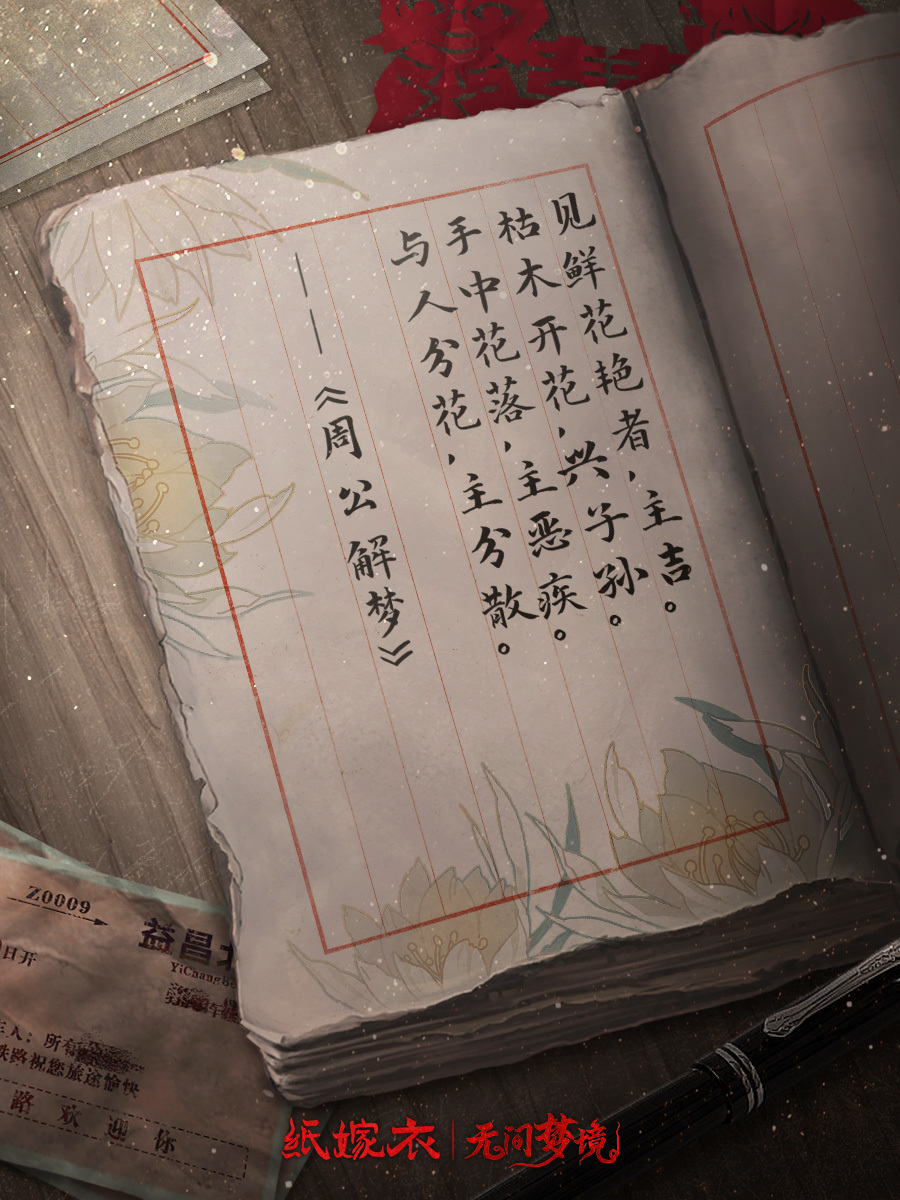 见鲜花艳者，主吉。
枯木开花，兴子孙。
手中花落，主恶疾。
与人分花，主分散。
——《周公解梦》
Z0009
益昌
YiChang
日开
主人：所有
铁路祝您旅途愉快
路欢迎你
纸嫁衣|无间梦境